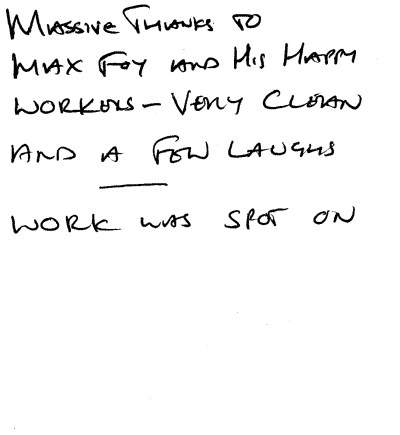 MASSIVE THANKS TO
MAX FOY AND HIS HAPPY
WORKERS - VERY CLEAN
AND A FEW LAUGHS
WORK WAS SPOT ON